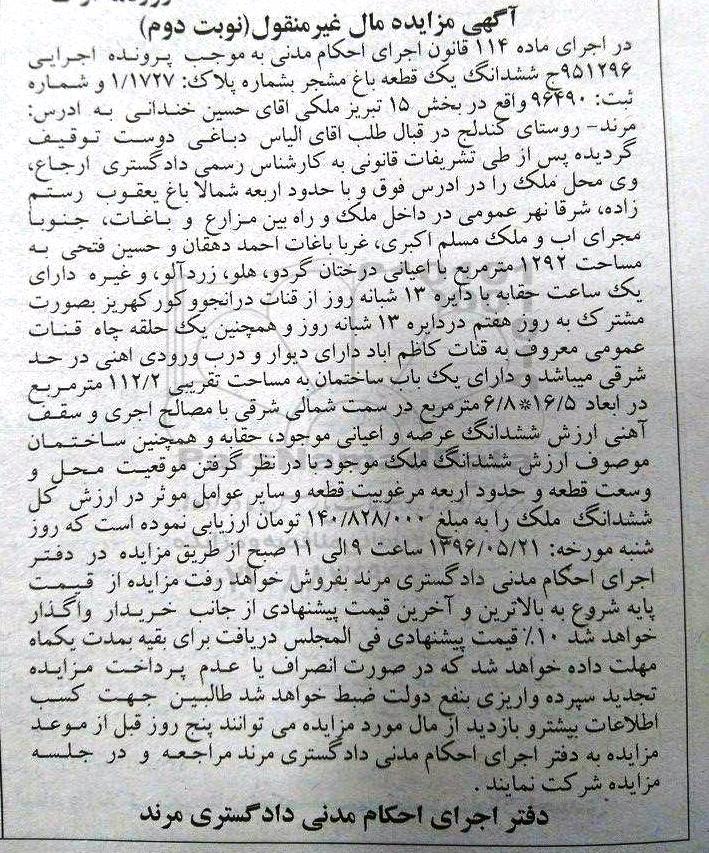 آگهی مزایده مال غیرمنقول(نوبت دوم)
در اجرای ماده ۱۱۴ قانون اجرای احکام مدنی به موجب پرونده اجرایی
۹۵۱۲۹۶ج ششدانگ یک قطعه باغ مشجر بشماره پلاک: ۱/۱۷۲۷ و شماره
ثبت: ۹۶۴۹۰ واقع در بخش ۱۵ تبریز ملکی اقای حسین خندانی به ادرس:
مرند- روستای کندلج در قبال طلب اقای الیاس دباغی دوست توقیف
گردیده پس از طی تشریفات قانونی به کارشناس رسمی دادگستری ارجاع،
وی محل ملک را در ادرس فوق و با حدود اربعه شمالا باغ یعقوب رستم
زاده، شرقا نهر عمومی در داخل ملک و راه بین مزارع و باغات، جنوبا
مجرای اب و ملک مسلم اکبری، غربا باغات احمد دهقان و حسین فتحی به
مساحت ۱۲۹۲ مترمربع با اعیانی درختان گردو، هلو، زردآلو، و غیره دارای
یک ساعت حقابه با دایره ۱۳ شبانه روز از قنات درانجوو کور کهریز بصورت
مشترک به روز هفتم دردایره ۱۳ شبانه روز و همچنین یک حلقه چاه قنات
عمومی معروف به قنات کاظم اباد دارای دیوار و درب ورودی اهنی در حد
شرقی میباشد و دارای یک باب ساختمان به مساحت تقریبی ۱۱۲/۲ مترمربع
در ابعاد ۱۶/۵*۶/۸ مترمربع در سمت شمالی شرقی با مصالح اجری و سقف
آهنی ارزش ششدانگ عرصه و اعیانی موجود، حقابه و همچنین ساختمان
موصوف ارزش ششدانگ ملک موجود با در نظر گرفتن موقعیت محل و
وسعت قطعه و حدود اربعه مرغوبیت قطعه و سایر عوامل موثر در ارزش کل
ششدانگ ملک را به مبلغ ۱۴۰/۸۲۸/۰۰۰ تومان ارزیابی نموده است که روز
شنبه مورخه: ۱۳۹۶/۰۵/۲۱ ساعت ۹ الی ۱۱ صبح از طریق مزایده در دفتر
اجرای احکام مدنی دادگستری مرند بفروش خواهد رفت مزایده از قیمت
پایه شروع به بالاترین و آخرین قیمت پیشنهادی از جانب خریدار واگذار
خواهد شد ۱۰٪ قیمت پیشنهادی فی المجلس دریافت برای بقیه بمدت یکماه
مهلت داده خواهد شد که در صورت انصراف یا عدم پرداخت مزایده
تجدید سپرده واریزی بنفع دولت ضبط خواهد شد طالبین جهت کسب
اطلاعات بیشترو بازدید از مال مورد مزایده می توانند پنج روز قبل از موعد
مزایده به دفتر اجرای احکام مدنی دادگستری مرند مراجعه و در جلسه
مزایده شرکت نمایند .
دفتر اجرای احکام مدنی دادگستری مرند